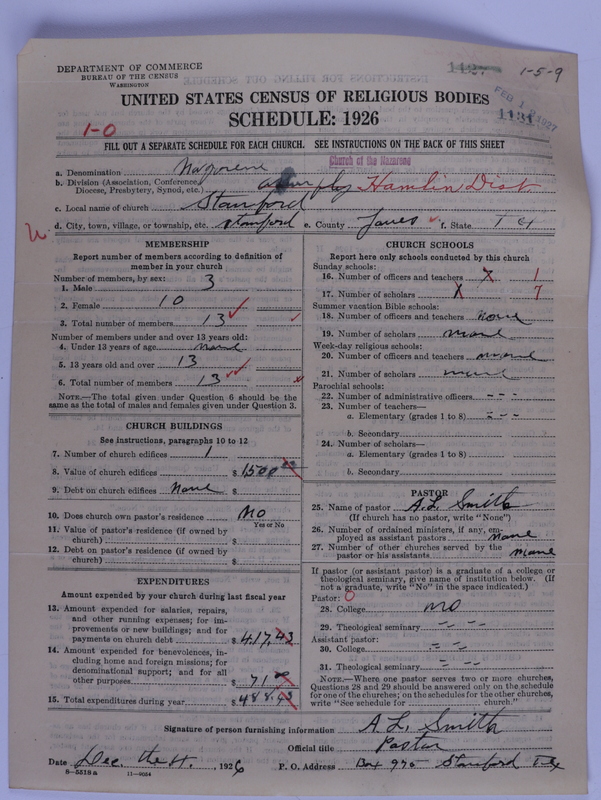 DEPARTMENT OF COMMERCE
BUREAU OF THE CENSUS
WASHINGTON
1-5-9
UNITED STATES CENSUS OF RELIGIOUS BODIES
SCHEDULE: 1926
1-0
FILL OUT A SEPARATE SCHEDULE FOR EACH CHURCH. SEE INSTRUCTIONS ON THE BACK OF THIS SHEET
a. Denomination Nazorene Church of the Nazarene
b. Division (Association, Conference, Diocese, Presbytery, Synod, etc.) Hamlin Dist
c. Local name of church Stamford
d. City, town, village, or township, etc. Stamford e. County Jones f. State Tex
MEMBERSHIP
Report number of members according to definition of
member in your church
Number of members, by sex:
1. Male 3
2. Female 10
3. Total number of members 13
Number of members under and over 13 years old:
4. Under 13 years of age None
5. 13 years old and over 13
6. Total number of members 13
NOTE.—The total given under Question 6 should be
same as the total of males and females given under Question 3.
CHURCH BUILDINGS
See instructions, paragraphs 10 to 12
7. Number of church edifices 1
8. Value of church edifices $1500
9. Debt on church edifices None $
10. Does church own pastor's residence No
Yes or No
11. Value of pastor's residence (if owned by
church) $
12. Debt on pastor's residence (if owned by
church) $
EXPENDITURES
Amount expended by your church during last fiscal year
13. Amount expended for salaries, repairs,
and other running expenses; for im-
provements or new buildings; and for
payments on church debt $417.43
14. Amount expended for benevolences, in-
cluding home and foreign missions; for
denominational support; and for all
other purposes $71
15. Total expenditures during year $488.43
CHURCH SCHOOLS
Report here only schools conducted by this church
Sunday schools:
16. Number of officers and teachers X 1
17. Number of scholars X 7
Summer vacation Bible schools:
18. Number of officers and teachers None
19. Number of scholars none
Week-day religious schools:
20. Number of officers and teachers none
21. Number of scholars none
Parochial schools:
22. Number of administrative officers - - -
23. Number of teachers—
a. Elementary (grades 1 to 8) - - -
b. Secondary
24. Number of scholars—
a. Elementary (grades 1 to 8)
b. Secondary
PASTOR
25. Name of pastor A. L. Smith
(If church has no pastor, write "None")
26. Number of ordained ministers, if any, em-
ployed as assistant pastors none
27. Number of other churches served by the
pastor or his assistants none
If pastor (or assistant pastor) is a graduate of a college or
theological seminary, give name of institution below. (If
not a graduate, write "No" in the space indicated.)
Pastor: 0
28. College no
29. Theological seminary - - -
Assistant pastor:
30. College - -
31. Theological seminary - - -
NOTE.—Where one pastor serves two or more churches,
Questions 28 and 29 should be answered only on the schedule
for one of the churches; on the schedules for the other churches,
write "See schedule for church."
Signature of person furnishing information A. L. Smith
Official title Pastor
Date Dec. the , 1926 P. O. Address Box 975 Stamford Tex
8-5518 a 11-9054